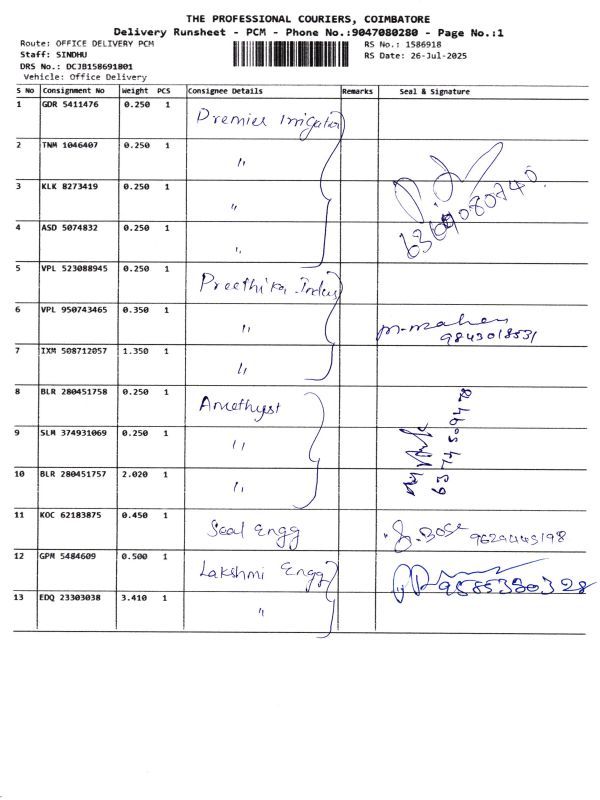 THE PROFESSIONAL COURIERS, COIMBATORE
Delivery Runsheet - PCM - Phone No.:9047080280 - Page No.:1
Route: OFFICE DELIVERY PCM RS No.: 1586918
Staff: SINDHU RS Date: 26-Jul-2025
DRS No.: DCJB158691801
Vehicle: Office Delivery
S No Consignment No Weight PCS Consignee Details Remarks Seal & Signature
1 GDR 5411476 0.250 1 Premier Irrigator
2 TNM 1046407 0.250 1 "
3 KLK 8273419 0.250 1 "
4 ASD 5074832 0.250 1 "
5 VPL 523088945 0.250 1 Preethika Indus
6 VPL 950743465 0.350 1 " m. mahen 9843018531
7 IXM 508712057 1.350 1 "
8 BLR 280451758 0.250 1 Amethyst
9 SLM 374931069 0.250 1 " 6374509478
10 BLR 280451757 2.020 1 "
11 KOC 62183875 0.450 1 Seal Engg S. Bose 9629445198
12 GPM 5484609 0.500 1 Lakshmi Engg 9585330328
13 EDQ 23303038 3.410 1 "